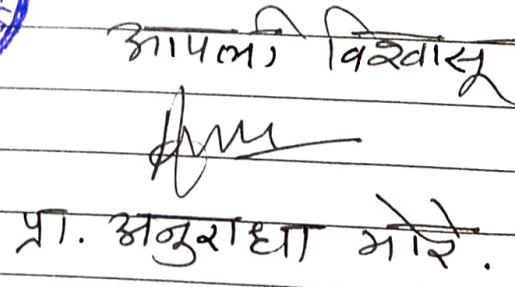 आपली विश्वासू
प्रा. अनुराधा मोरे.